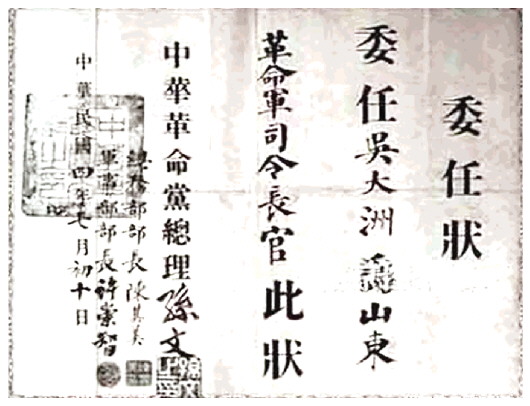 委任狀
委任吳大洲 山東
革命軍司令長官此狀
中華革命黨總理孫文
總務部部長陳其美
軍事部部長許崇智
中華民國四年 月初十日